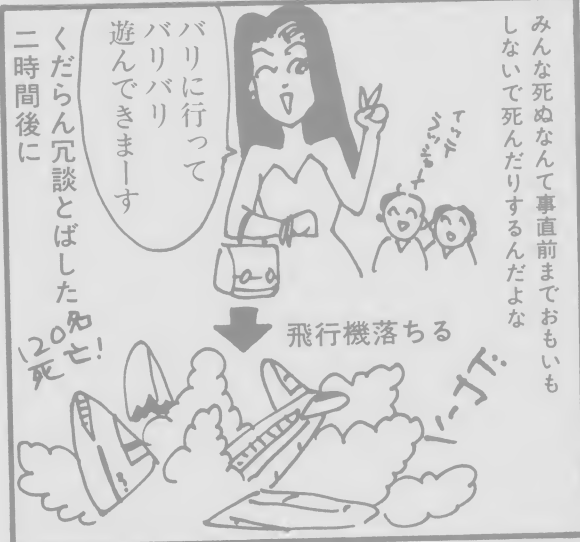 みんな死ぬなんて事直前までおもいも
しないで死んだりするんだよな
バリに行って
バリバリ
遊んできまーす
くだらん冗談とばした
二時間後に
飛行機落ちる
120名
死亡!